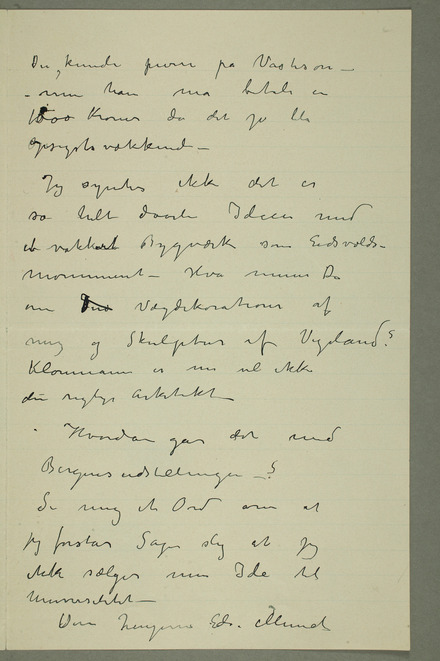 Du kunde prøve på Vaslison –
– men han må betale en
1500 Kroner da det jo ble
opsigtsvækkende –
Jeg synes ikke det er
så helt dårlig Ideen med
et vakkert Bygværk som Eidsvolds-
monument – Hva mener Du
om Vægdekorationer af
mig og Skulptur af Vigeland?
Klonmann er nu vel ikke
den rigtige Arkitekt –
Hvordan går det med
Bergensudstillingen –?
Si mig et Ord om at
jeg forstår Sagen slig at jeg
ikke sælger min Ide til
Universitetet –
Din hengivne Edv. Munch